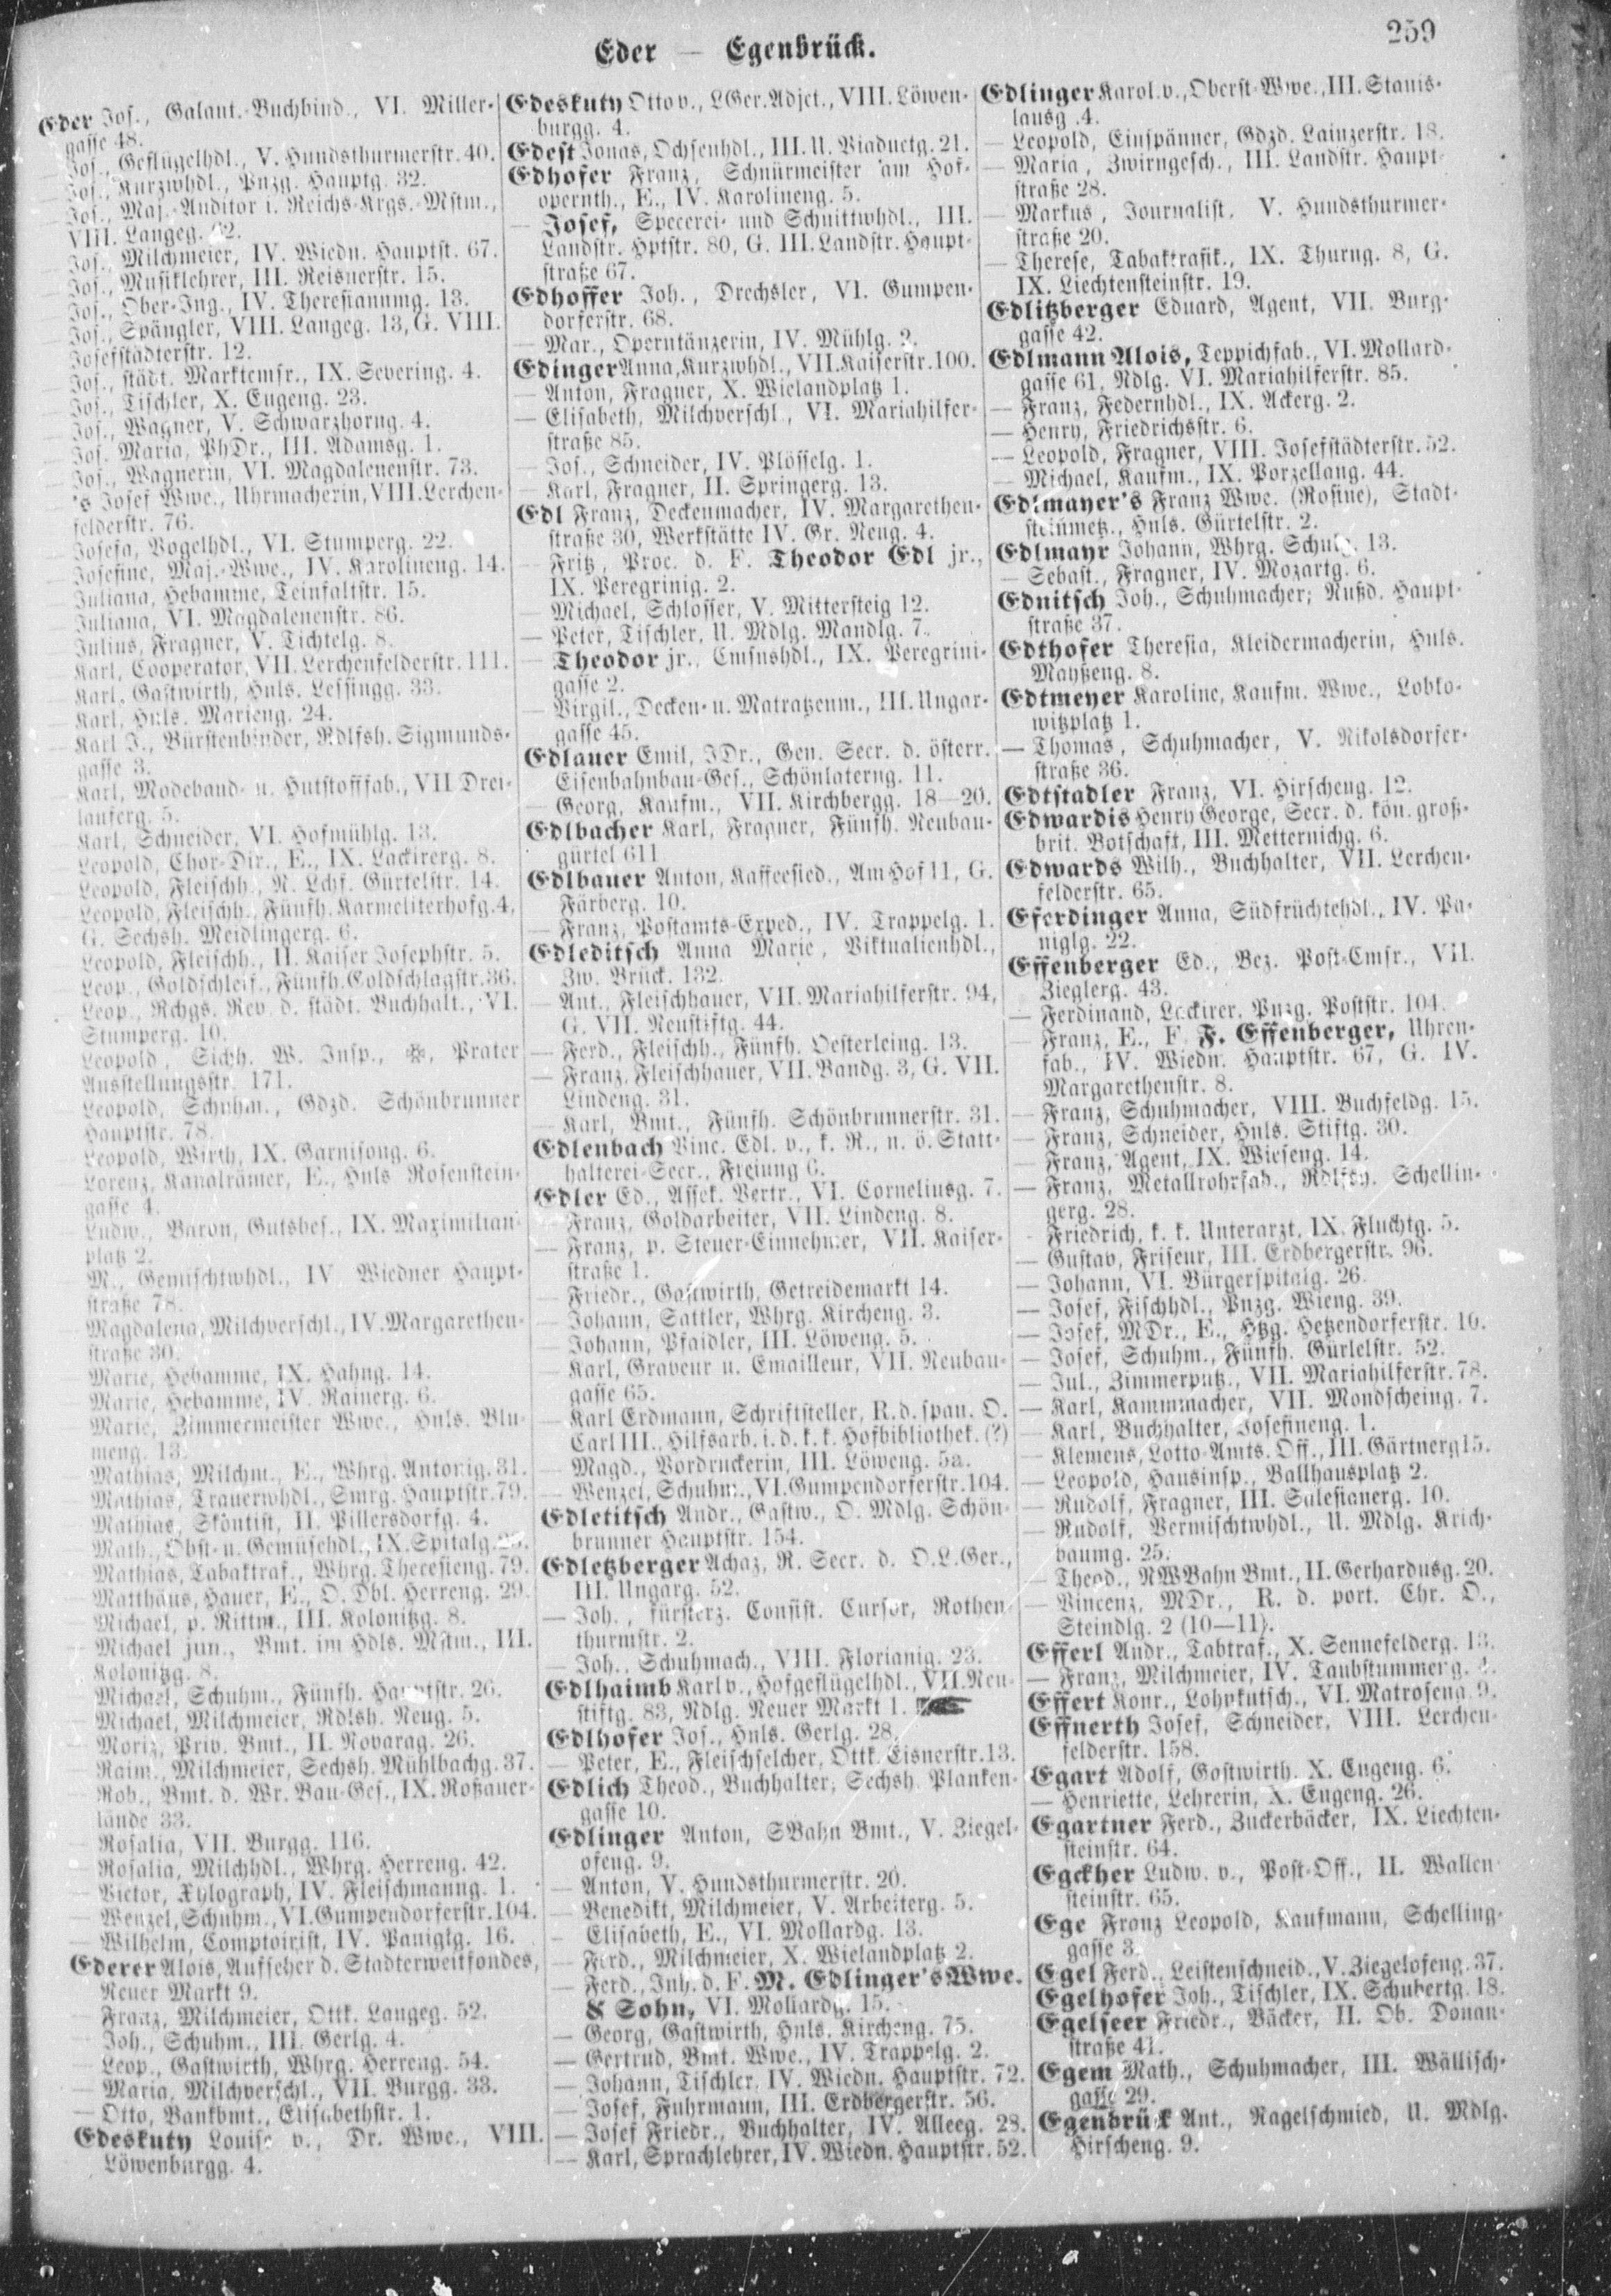 Eder — Egenbrück.
259
Eder Jos., Galant.-Buchbind., VI. Miller-
gasse 48.
— Jos., Geflügelhdl., V. Hundsthurmerstr. 40.
— Jos., Kurzwhdl., Pnzg. Hauptg. 32.
— Jos., Maj.-Auditor i. Reichs-Krgs.-Mstm.,
VIII. Langeg.
— Jos., Milchmeier, IV. Wiedn. Hauptst. 67.
— Jos., Musiklehrer, III. Reisnerstr. 15.
— Jos., Ober-Ing., IV. Theresianumg. 13.
— Jos., Spängler, VIII. Langeg. 13, G. VIII.
Josefstädterstr. 12.
— Jos., städt. Marktcmsr., IX. Severing. 4.
— Jos., Tischler, X. Eugeng. 23.
— Jos., Wagner, V. Schwarzhorng. 4.
— Jos. Maria, PhDr., III. Adamsg. 1.
— Jos., Wagnerin, VI. Magdalenenstr. 73.
— 's Josef Wwe., Uhrmacherin, VIII. Lerchen-
felderstr. 76.
— Josefa, Vogelhdl., VI. Stumperg. 22.
— Josefine, Maj.-Wwe., IV. Karolineng. 14.
— Juliana, Hebamme, Teinfaltstr. 15.
— Juliana, VI. Magdalenenstr. 86.
— Julius, Fragner, V. Tichtelg. 8.
— Karl, Cooperator, VII. Lerchenfelderstr. 111.
— Karl, Gastwirth, Hnls. Lessingg. 33.
— Karl, Hnls. Marieng. 24.
— Karl J., Bürstenbinder, Rdlfsh. Sigmunds-
gasse 3.
— Karl, Modeband- u. Hutstofffab., VII Drei-
lauferg. 5.
— Karl, Schneider, VI. Hofmühlg. 13.
— Leopold, Chor-Dir., E., IX. Lackirerg. 8.
— Leopold, Fleischh., N. Lchf. Gürtelstr. 14.
— Leopold, Fleischh., Fünfh. Karmeliterhofg. 4,
G. Sechsh. Meidlingerg. 6.
— Leopold, Fleischh., II. Kaiser Josephstr. 5.
— Leop., Goldschleif., Fünfh. Goldschlagstr. 36.
— Leop., Rchgs. Rev. d. städt. Buchhalt., VI.
Stumperg. 10.
— Leopold, Sichh. W. Insp., ✠, Prater
Ausstellungsstr. 171.
— Leopold, Schuhm., Gdzd. Schönbrunner
Hauptstr. 78.
— Leopold, Wirth, IX. Garnisong. 6.
— Lorenz, Kanalrämer, E., Hnls Rosenstein-
gasse 4.
— Ludw., Baron, Gutsbes., IX. Maximilian-
platz 2.
— M., Gemischtwhdl., IV. Wiedner Haupt-
straße 78.
— Magdalena, Milchverschl., IV. Margarethen-
straße 30.
— Marie, Hebamme, IX. Hahng. 14.
— Marie, Hebamme, IV. Rainerg. 6.
— Marie, Zimmermeister Wwe., Hnls. Blu-
meng. 13.
— Mathias, Milchm., E., Whrg. Antonig. 31.
— Mathias, Trauerwhdl., Smrg. Hauptstr. 79.
— Mathias, Skontist, II. Pillersdorfg. 4.
— Math., Obst- u. Gemüsehdl., IX. Spitalg.
— Mathias, Tabaktraf., Whrg. Theresieng. 79.
— Matthäus, Hauer, E., O. Dbl. Herreng. 29.
— Michael, p. Rittm., III. Kolonitzg. 8.
— Michael jun., Bmt. im Hdls. Mstm., III.
Kolonitzg. 8.
— Michael, Schuhm., Fünfh. Hauptstr. 26.
— Michael, Milchmeier, Rdlsh. Neug. 5.
— Moriz, Priv. Bmt., II. Novarag. 26.
— Raim., Milchmeier, Sechsh. Mühlbachg. 37.
— Rob., Bmt. d. Wr. Bau-Ges., IX. Roßauer-
lände 33.
— Rosalia, VII. Burgg. 116.
— Rosalia, Milchhdl., Whrg. Herreng. 42.
— Victor, Xylograph, IV. Fleischmanng. 1.
— Wenzel, Schuhm., VI. Gumpendorferstr. 104.
— Wilhelm, Comptoirist, IV. Paniglg. 16.
Ederer Alois, Aufseher d. Stadterweitfondes,
Neuer Markt 9.
— Franz, Milchmeier, Ottk. Langeg. 52.
— Joh., Schuhm., III. Gerlg. 4.
— Leop., Gastwirth, Whrg. Herreng. 54.
— Maria, Milchverschl., VII. Burgg. 33.
— Otto, Bankbmt., Elisabethstr. 1.
Edeskuty Louise v., Dr. Wwe., VIII.
Löwenburgg. 4.
Edeskuty Otto v., LGer. Adjct., VIII. Löwen-
burgg. 4.
Edest Jonas, Ochsenhdl., III. U. Viaductg. 21.
Edhofer Franz, Schnürmeister am Hof-
opernth., E., IV. Karolineng. 5.
— Josef, Specerei- und Schnittwhdl., III.
Landstr. Hptstr. 80, G. III. Landstr. Haupt-
straße 67.
Edhoffer Joh., Drechsler, VI. Gumpen-
dorferstr. 68.
— Mar., Operntänzerin, IV. Mühlg. 2.
Edinger Anna, Kurzwhdl., VII. Kaiserstr. 100.
— Anton, Fragner, X. Wielandplatz 1.
— Elisabeth, Milchverschl., VI. Mariahilfer-
straße 85.
— Jos., Schneider, IV. Plösselg. 1.
— Karl, Fragner, II. Springerg. 13.
Edl Franz, Deckenmacher, IV. Margarethen-
straße 30, Werkstätte IV. Gr. Neug. 4.
— Fritz, Proc. d. F. Theodor Edl jr.,
IX. Peregrinig. 2.
— Michael, Schlosser, V. Mittersteig 12.
— Peter, Tischler, U. Mdlg. Mandlg. 7.
— Theodor jr., Cmsnshdl., IX. Peregrini-
gasse 2.
— Virgil., Decken- u. Matratzenm., III. Ungar-
gasse 45.
Edlauer Emil, JDr., Gen. Secr. d. österr.
Eisenbahnbau-Ges., Schönlaterng. 11.
— Georg, Kaufm., VII. Kirchbergg. 18—20.
Edlbacher Karl, Fragner, Fünfh. Neubau-
gürtel 611
Edlbauer Anton, Kaffeesied., Am Hof 11, G.
Färberg. 10.
— Franz, Postamts-Exped., IV. Trappelg. 1.
Edleditsch Anna Marie, Viktualienhdl.,
Zw. Brück. 132.
— Ant., Fleischhauer, VII. Mariahilferstr. 94,
G. VII. Neustiftg. 44.
— Ferd., Fleischh., Fünfh. Oesterleing. 13.
— Franz, Fleischhauer, VII. Bandg. 3, G. VII.
Lindeng. 31.
— Karl, Bmt., Fünfh. Schönbrunnerstr. 31.
Edlenbach Vinc. Edl. v., k. R., n. ö. Statt-
halterei-Secr., Freiung 6.
Edler Ed., Assek. Vertr., VI. Corneliusg. 7.
— Franz, Goldarbeiter, VII. Lindeng. 8.
— Franz, p. Steuer-Einnehmer, VII. Kaiser-
straße 1.
— Friedr., Gastwirth, Getreidemarkt 14.
— Johann, Sattler, Whrg. Kircheng. 3.
— Johann, Pfaidler, III. Löweng. 5.
— Karl, Graveur u. Emailleur, VII. Neubau-
gasse 65.
— Karl Erdmann, Schriftsteller, R. d. span. O.
Carl III., Hilfsarb. i. d. k. k. Hofbibliothek. (?)
— Magd., Vordruckerin, III. Löweng. 5a.
— Wenzel, Schuhm., VI. Gumpendorferstr. 104.
Edletitsch Andr., Gastw., O. Mdlg. Schön-
brunner Hauptstr. 154.
Edletzberger Achaz, R. Secr. d. O.L.Ger.,
III. Ungarg. 52.
— Joh., fürsterz. Consist. Cursor, Rothen-
thurmstr. 2.
— Joh., Schuhmach., VIII. Florianig. 23.
Edlhaimb Karl v., Hofgeflügelhdl., VII. Neu-
stiftg. 83, Ndlg. Neuer Markt 1.
Edlhofer Jos., Hnls. Gerlg. 28.
— Peter, E., Fleischselcher, Ottk. Eisnerstr. 13.
Edlich Theod., Buchhalter, Sechsh. Planken-
gasse 10.
Edlinger Anton, SBahn Bmt., V. Ziegel-
ofeng. 9.
— Anton, V. Hundsthurmerstr. 20.
— Benedikt, Milchmeier, V. Arbeiterg. 5.
— Elisabeth, E., VI. Mollardg. 13.
— Ferd., Milchmeier, X. Wielandplatz 2.
— Ferd., Inh. d. F. M. Edlinger's Wwe.
& Sohn, VI. Mollardg. 15.
— Georg, Gastwirth, Hnls. Kircheng. 75.
— Gertrud, Bmt. Wwe., IV. Trappelg. 2.
— Johann, Tischler, IV. Wiedn. Hauptstr. 72.
— Josef, Fuhrmann, III. Erdbergerstr. 56.
— Josef Friedr., Buchhalter, IV. Alleeg. 28.
— Karl, Sprachlehrer, IV. Wiedn. Hauptstr. 52.
Edlinger Karol. v., Oberst-Wwe., III. Stanis-
lausg .4.
— Leopold, Einspänner, Gdzd. Lainzerstr. 18.
— Maria, Zwirngesch., III. Landstr. Haupt-
straße 28.
— Markus, Journalist, V. Hundsthurmer-
straße 20.
— Therese, Tabaktrafik., IX. Thurng. 8, G.
IX. Liechtensteinstr. 19.
Edlitzberger Eduard, Agent, VII. Burg-
gasse 42.
Edlmann Alois, Teppichfab., VI. Mollard-
gasse 61, Ndlg. VI. Mariahilferstr. 85.
— Franz, Federnhdl., IX. Ackerg. 2.
— Henry, Friedrichsstr. 6.
— Leopold, Fragner, VIII. Josefstädterstr. 52.
— Michael, Kaufm., IX. Porzellang. 44.
Edlmayer's Franz Wwe. (Rosine), Stadt-
steinmetz., Hnls. Gürtelstr. 2.
Edlmayr Johann, Whrg. Schulg. 13.
— Sebast., Fragner, IV. Mozartg. 6.
Ednitsch Joh., Schuhmacher, Nußd. Haupt-
straße 37.
Edthofer Theresia, Kleidermacherin, Hnls.
Mayßeng. 8.
Edtmeyer Karoline, Kaufm. Wwe., Lobko-
witzplatz 1.
— Thomas, Schuhmacher, V. Nikolsdorfer-
straße 36.
Edtstadler Franz, VI. Hirscheng. 12.
Edwardis Henry George, Secr. d. kön. groß-
brit. Botschaft, III. Metternichg. 6.
Edwards Wilh., Buchhalter, VII. Lerchen-
felderstr. 65.
Eferdinger Anna, Südfrüchtehdl., IV. Pa-
niglg. 22.
Effenberger Ed., Bez. Post-Cmsr., VII.
Zieglerg. 43.
— Ferdinand, Lackirer. Pnzg. Poststr. 104.
— Franz, E., F. F. Effenberger, Uhren-
fab., IV. Wiedn. Hauptstr. 67, G. IV.
Margarethenstr. 8.
— Franz, Schuhmacher, VIII. Buchfeldg. 15.
— Franz, Schneider, Hnls. Stiftg. 30.
— Franz, Agent, IX. Wieseng. 14.
— Franz, Metallrohrfab., Rdlfsh. Schellin-
gerg. 28.
— Friedrich, k. k. Unterarzt, IX. Fluchtg. 5.
— Gustav, Friseur, III. Erdbergerstr. 96.
— Johann, VI. Bürgerspitalg. 26.
— Josef, Fischhdl., Pnzg. Wieng. 39.
— Josef, MDr., E., Htzg. Hetzendorferstr. 16.
— Josef, Schuhm., Fünfh. Gürtelstr. 52.
— Jul., Zimmerputz., VII. Mariahilferstr. 78.
— Karl, Kammmacher, VII. Mondscheing. 7.
— Karl, Buchhalter, Josefineng. 1.
— Klemens, Lotto-Amts. Off., III. Gärtnerg 15.
— Leopold, Hausinsp., Ballhausplatz 2.
— Rudolf, Fragner, III. Salesianerg. 10.
— Rudolf, Vermischtwhdl., U. Mdlg. Krich-
baumg. 25.
— Theod., NWBahn Bmt., II. Gerhardusg. 20.
— Vincenz, MDr., R. d. port. Chr. O.,
Steindlg. 2 (10—11).
Efferl Andr., Tabtraf., X. Sennefelderg. 13.
— Franz, Milchmeier, IV. Taubstummeng.
Effert Konr., Lohnkutsch., VI. Matroseng. 9.
Effnerth Josef, Schneider, VIII. Lerchen-
felderstr. 158.
Egart Adolf, Gastwirth. X. Eugeng. 6.
— Henriette, Lehrerin, X. Eugeng. 26.
Egartner Ferd., Zuckerbäcker, IX. Liechten-
steinstr. 64.
Egckher Ludw. v., Post-Off., II. Wallen-
steinstr. 65.
Ege Franz Leopold, Kaufmann, Schelling-
gasse 3.
Egel Ferd., Leistenschneid., V. Ziegelofeng. 37.
Egelhofer Joh., Tischler, IX. Schubertg. 18.
Egelseer Friedr., Bäcker, II. Ob. Donau-
straße 41.
Egem Math., Schuhmacher, III. Wällisch-
gasse 29.
Egenbrück Ant., Nagelschmied, U. Mdlg.
Hirscheng. 9.